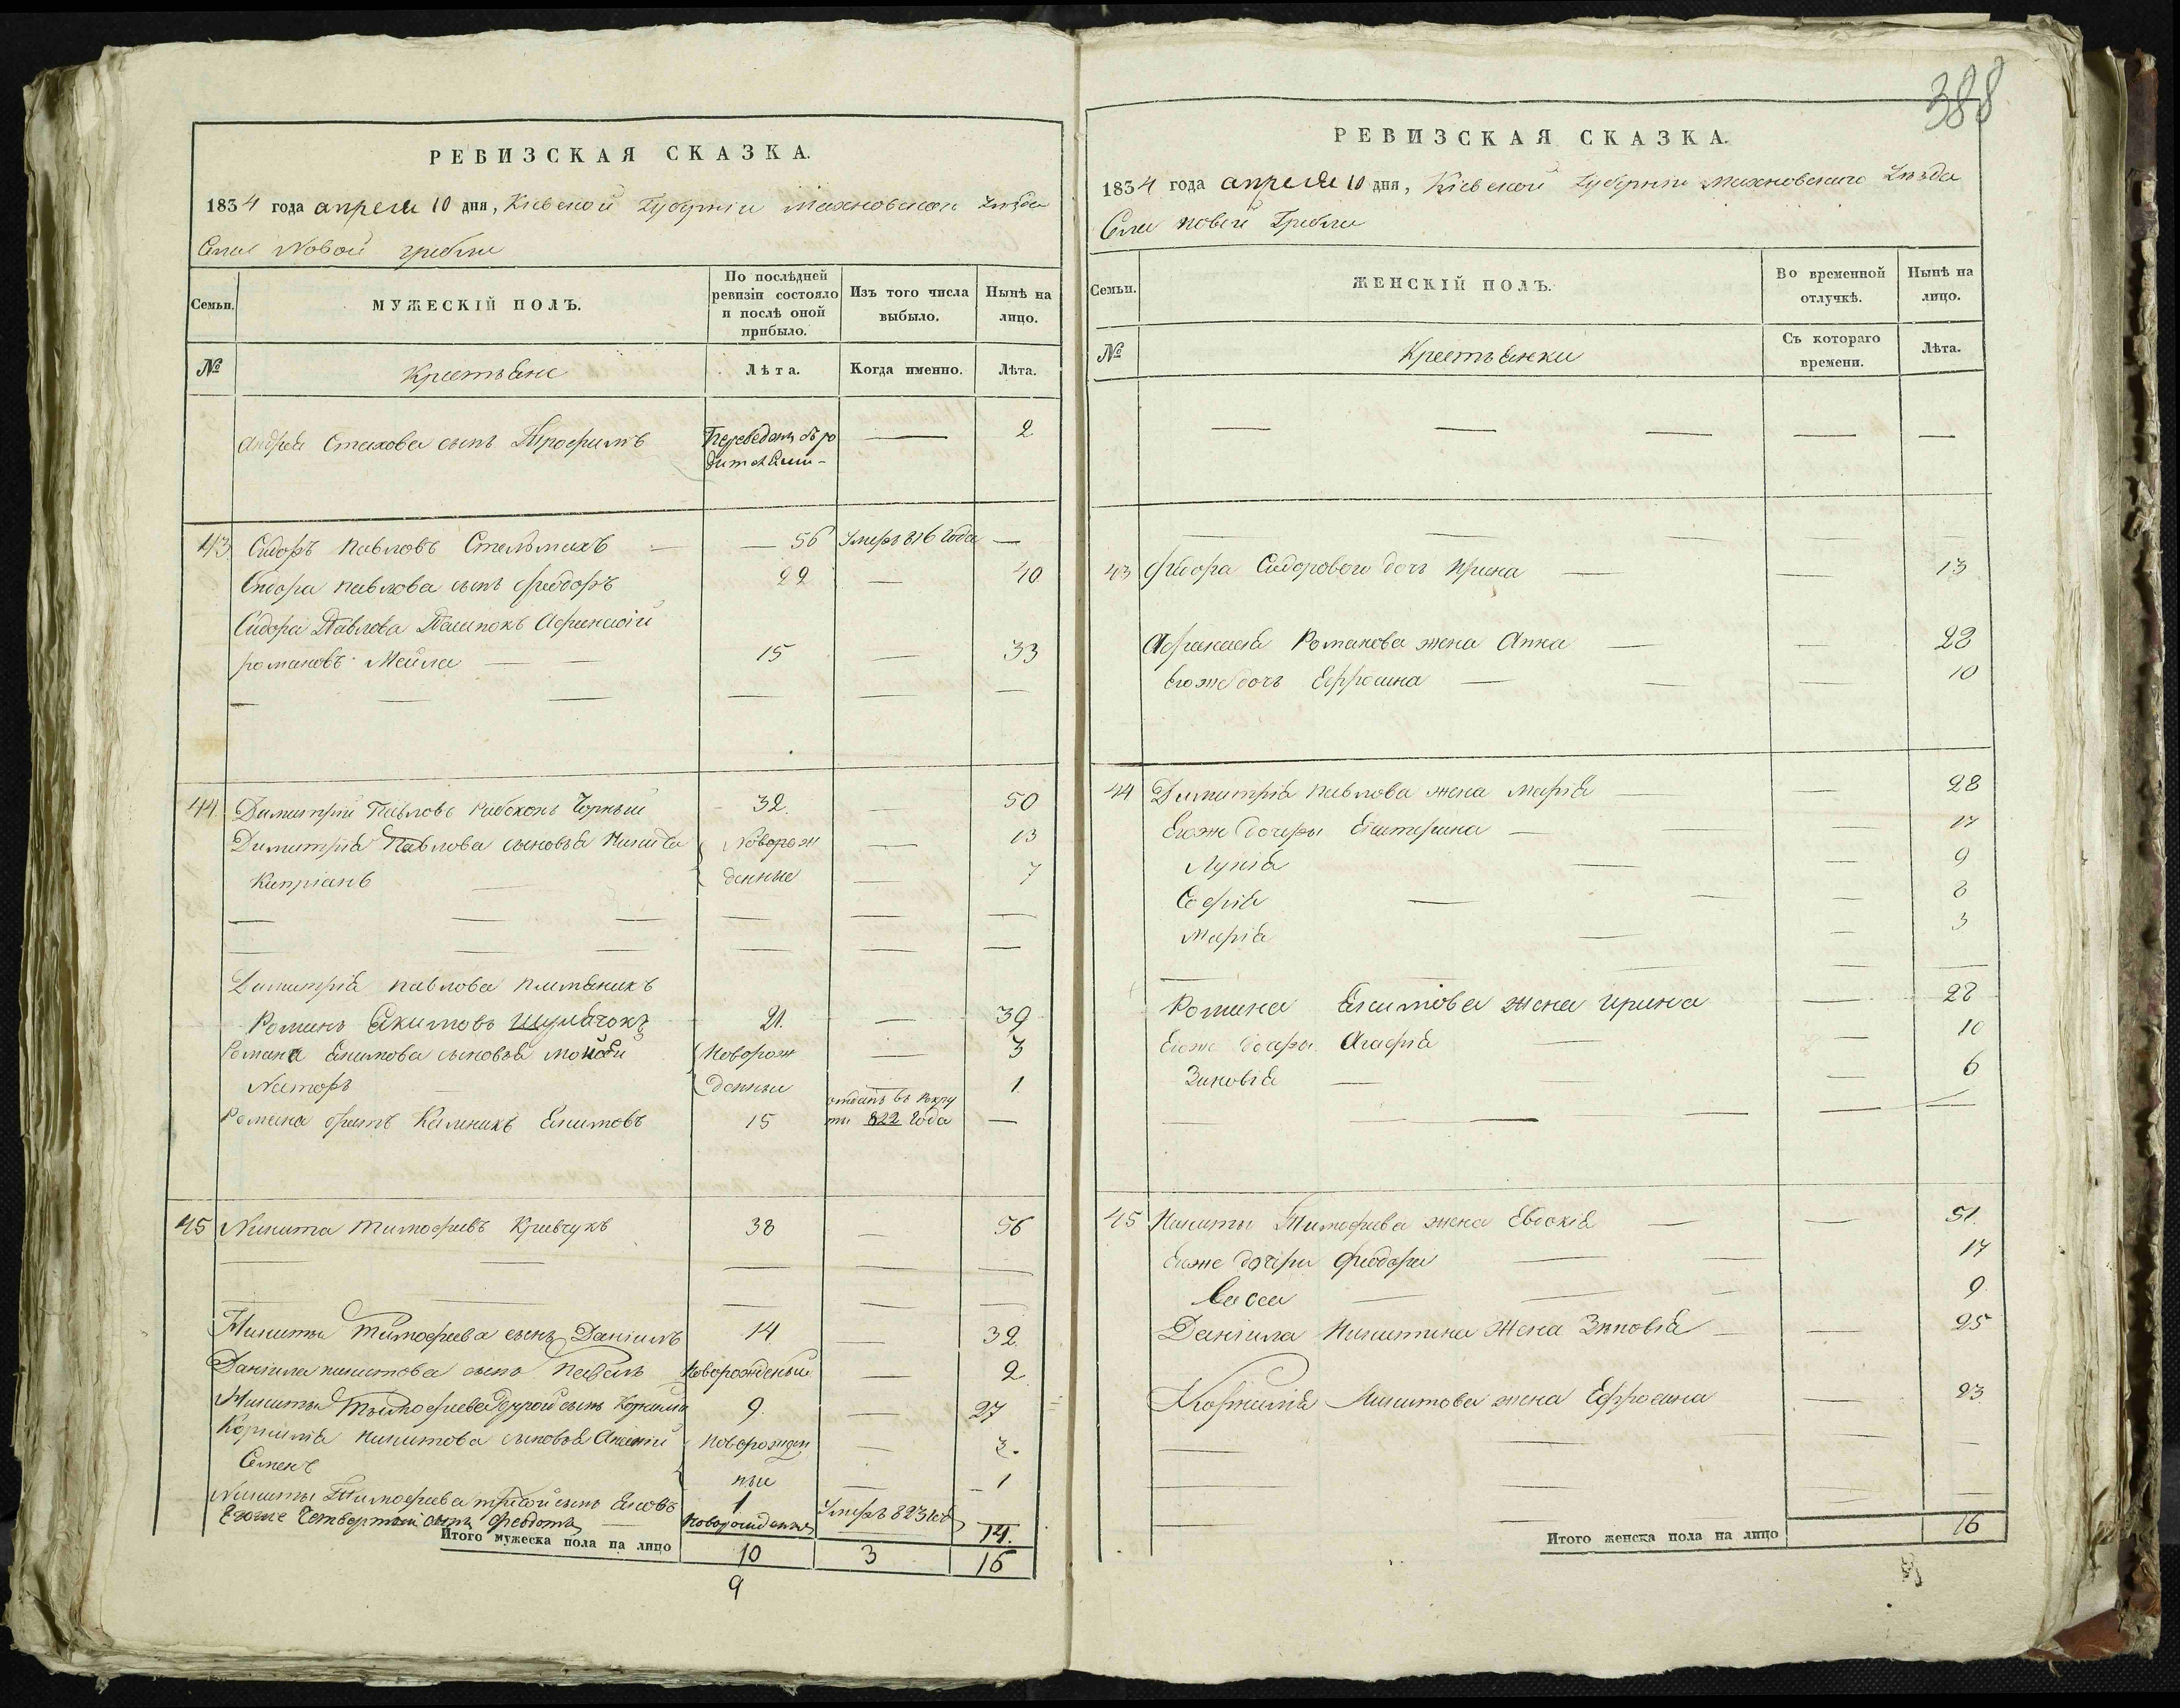 РЕВИЗСКАЯ СКАЗКА.
1834 года апреля 10 дня, Кіевской Губерніи Махновскаго Уѣзда
Села Новой гребли
Семьи.
МУЖЕСКІЙ ПОЛЪ.
По послѣдней ревизіи состояло и послѣ оной прибыло.
Изъ того числа выбыло.
Нынѣ на лицо.
№
Крестьяне
Лѣта.
Когда именно.
Лѣта.
Андрея Стахова сынъ Трофимъ Переведенъ съ ро — 2
дителями
43 Сидоръ Павловъ Стельмахъ — 56 Умеръ 816 Года —
Сидора Павлова сынъ Феодоръ 22 — 40
Сидора Павлова Афанасій
романовъ 15 — 33
44 Димитрій Павловъ Чорный 32. — 50
Димитрія Павлова сыновья Никита Новорож — 13
Кипріянъ денные — 7
Димитрія Павлова племяникъ
Романъ Екимовъ 21. — 39
Романа Екимова сыновья Новорож — 3
Несторъ денные — 1
Романа братъ Калиникъ Екимовъ 15 отданъ въ рекру
ты 822 Года —
45 Никита Тимофеевъ Кривчукъ 38 — 56
Никиты Тимофеева сынъ Даніилъ 14 — 32
Данiила никитова сынъ Павелъ Новорожденый — 2
Никиты Тимофеева Другой сынъ Корнилій 9. — 27
Корнилія никитова сыновья Новорожден — 3.
Семенъ ные — 1
Никиты Тимофеева третій сынъ Яковъ 1 Умеръ 823 год
Егоже Четвертый сынъ Феодотъ Новорожденый — 14.
Итого мужеска пола на лицо 10 3 16
9
388
РЕВИЗСКАЯ СКАЗКА.
1834 года апреля 10 дня, Кіевской Губерніи Махновскаго Уѣзда
Села Новой Гребли
Семьи.
ЖЕНСКІЙ ПОЛЪ.
Во временной отлучкѣ.
Нынѣ на лицо.
№
Крестьянки
Съ котораго времени.
Лѣта.
43 Феодора Сидорового дочь Ирина — — 13
Афанасія Романова жена Анна — — 28
Егоже дочь Ефросина — — 10
44 Димитрія Павлова жена Марія — — 28
Егоже дочеры Екатерина — — 17
Лукія — — 9
Софія — — 8
Марія — — 3
Романа Екимова жена Ирина — 28
Егоже дочеры Агафія — — 10
Зиновія — — 6
45 Никиты Тимофеева жена Евдокія — — 51.
Егоже дочеры Феодора — — 17
Васса — — 9
Даніила Никитина Жена Зиновія — — 25
Корнилія Никитова жена Ефросина — 23.
Итого женска пола на лицо 16